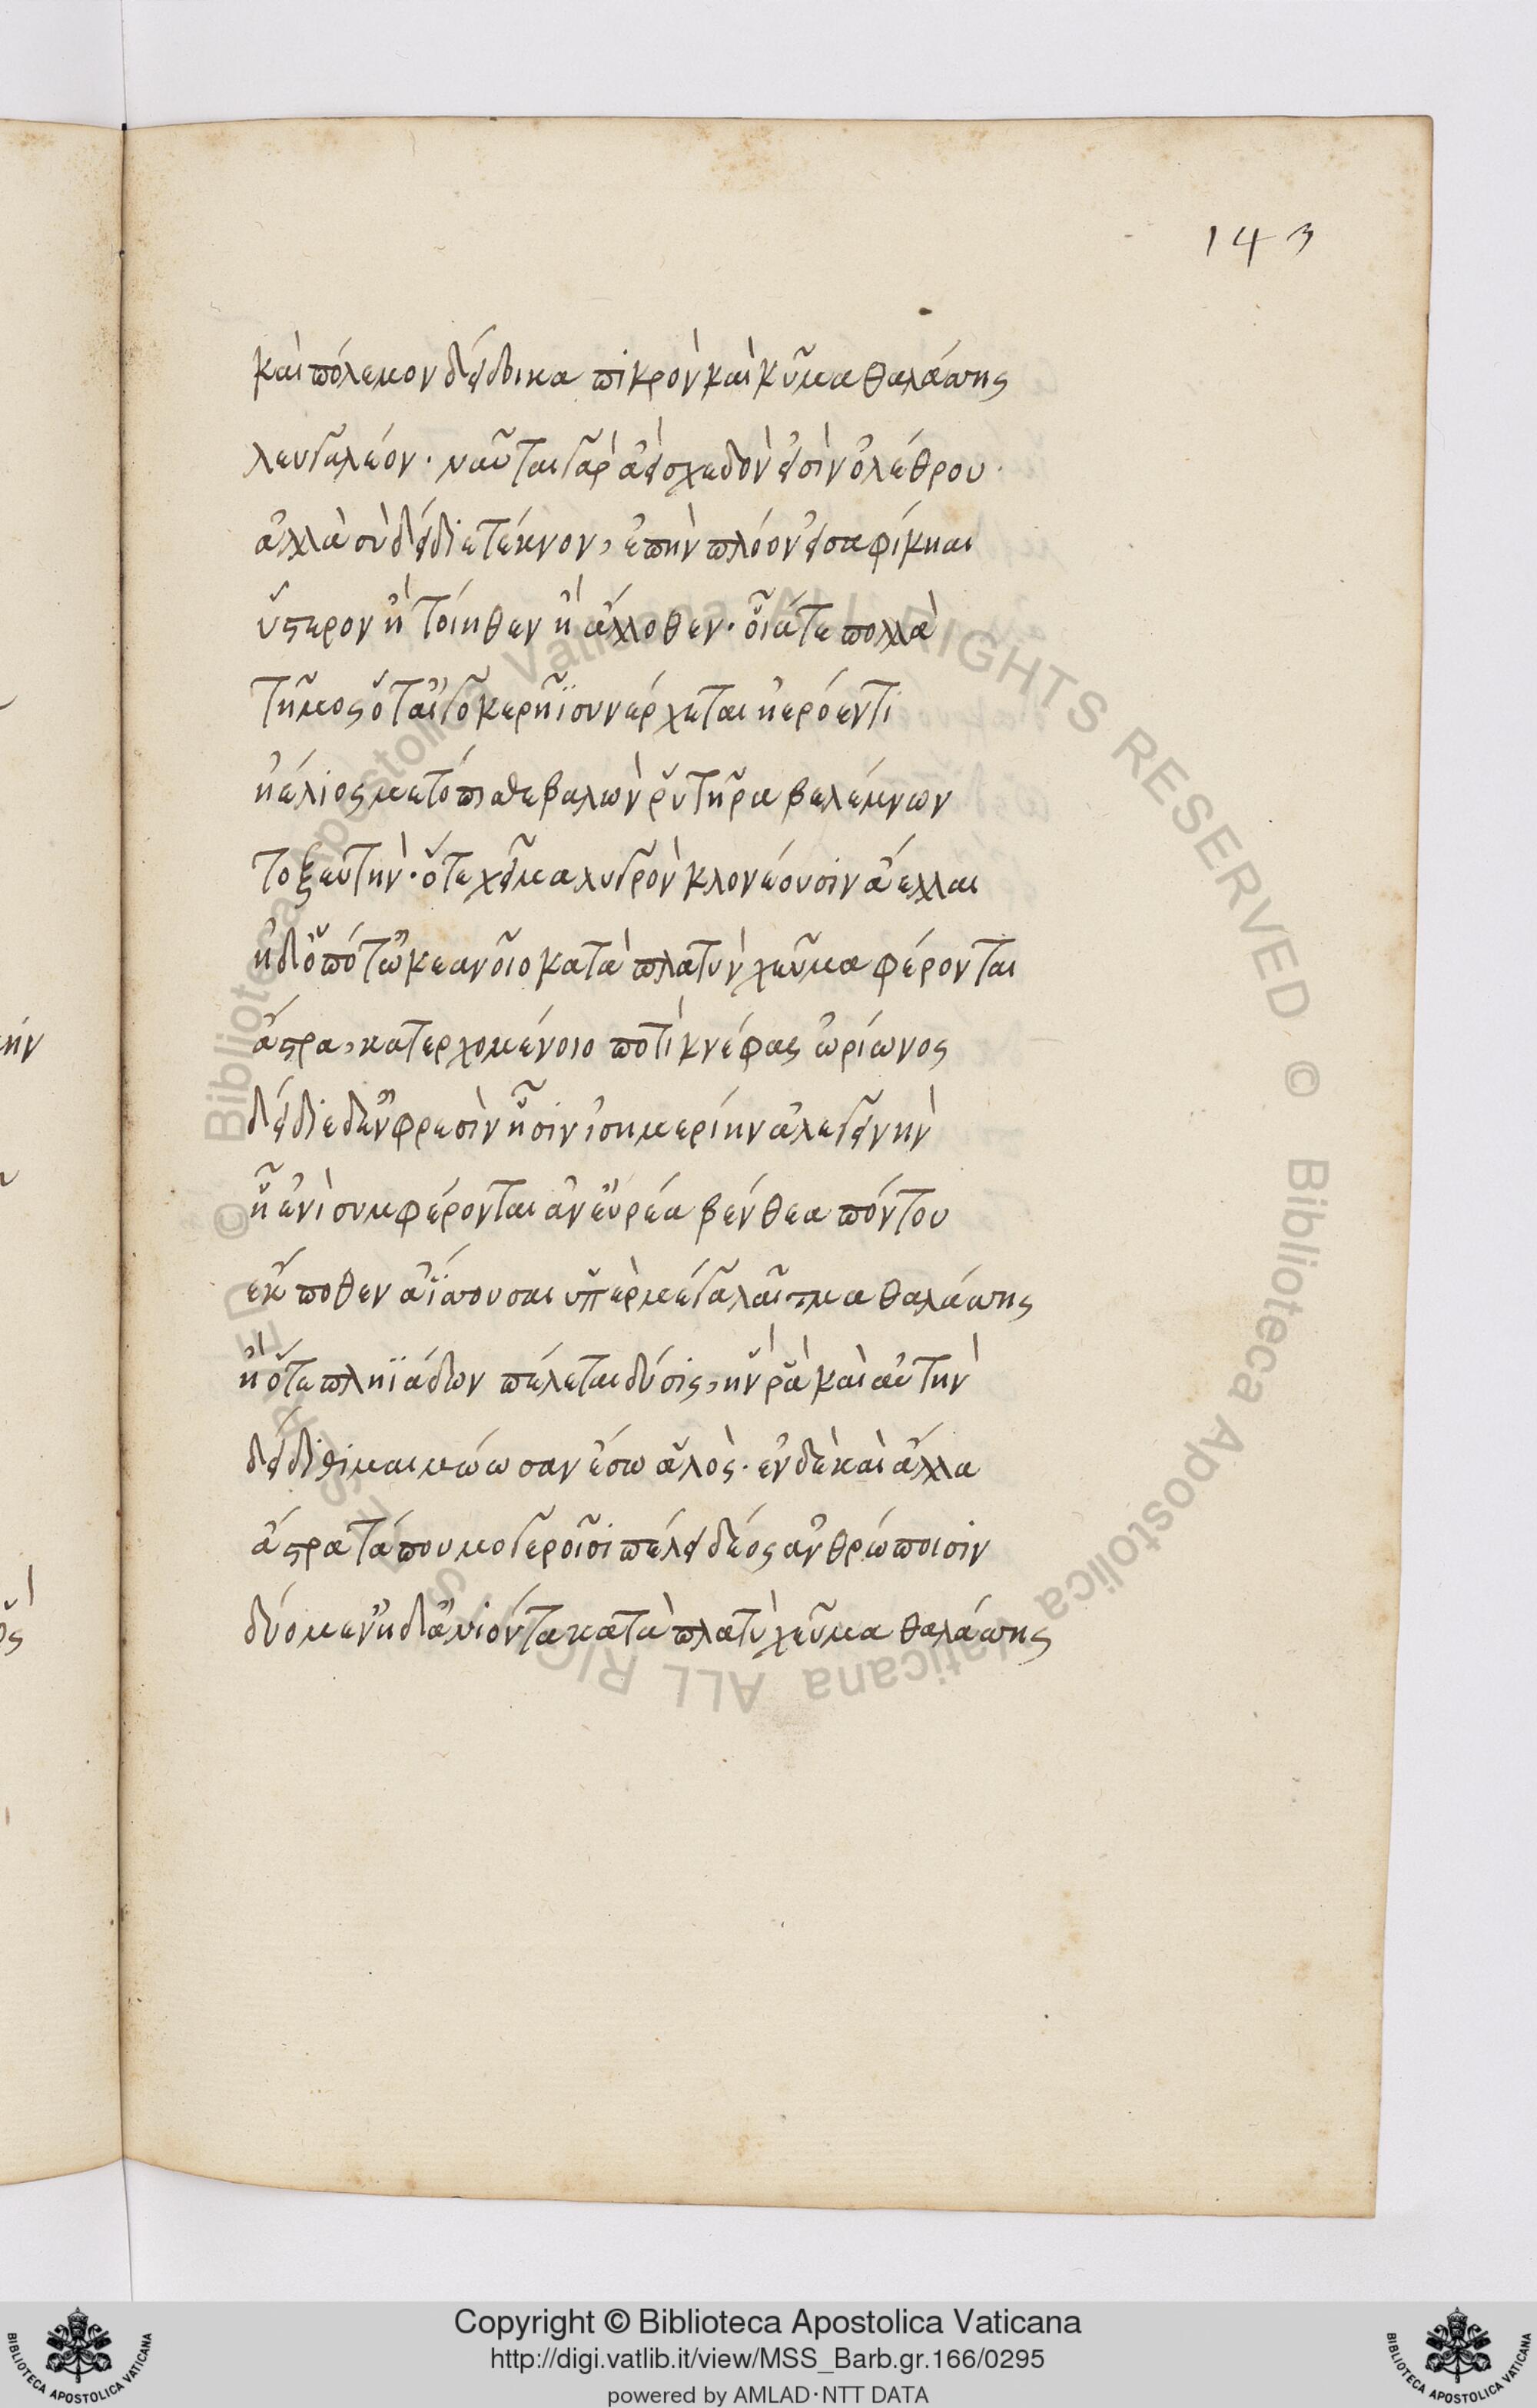 143
καὶ πόλεμον δείδοικα πικρὸν καὶ κῦμα θαλάσσης
λευγαλέον· ναῦται γὰρ ἀεὶ σχεδὸν εἰσὶν ὀλέθρου·
ἀλλὰ σὺ δείδιε τέκνον, ἐπὴν πλόον εἰσαφίκηαι
ὕστερον ἢ τοίηθεν ἢ ἄλλοθεν· οἷά τε πολλὰ
τῆμος ὅτ' αἰγοκερῆϊ συνέρχεται ἠερόεντι
ἠέλιος μετόπισθε βαλὼν ῥυτῆρα βελέμνων
τοξευτὴν· ὅτε χεῖμα λυγρὸν κλονέουσιν ἄελλαι
ἠδ' ὁπότ' ὠκεανοῖο κατὰ πλατὺν χεῦμα φέρονται
ἄστρα, κατερχομένοιο ποτὶ κνέφας ὠρίωνος
δείδιε δ' ἐν φρεσὶν ᾗσιν ἰσημερίην ἀλεγεινὴν
ᾗ ἐνὶ συμφέρονται ἀν' εὐρέα βένθεα πόντου
ἔκποθεν ἀΐσσουσαι ὑπὲρ μέγα λαῖτμα θαλάσσης
ἢ ὅτε πληϊάδων πέλεται δύσις, ἣν ῥὰ καὶ αὐτὴν
δείδιθι μαιμώωσαν ἔσω ἁλὸς· ἐν δὲ καὶ ἄλλα
ἄστρα τά που μογεροῖσι πέλει δέος ἀνθρώποισιν
δυόμεν' ἠδ' ἀνιόντα κατὰ πλατὺ χεῦμα θαλάσσης
© Biblioteca Apostolica Vaticana ALL RIGHTS RESERVED © Biblioteca Apostolica Vaticana ALL RIGHTS RESERVED
Copyright © Biblioteca Apostolica Vaticana
http://digi.vatlib.it/view/MSS_Barb.gr.166/0295
powered by AMLAD·NTT DATA
BIBLIOTECA APOSTOLICA VATICANA
BIBLIOTECA APOSTOLICA VATICANA